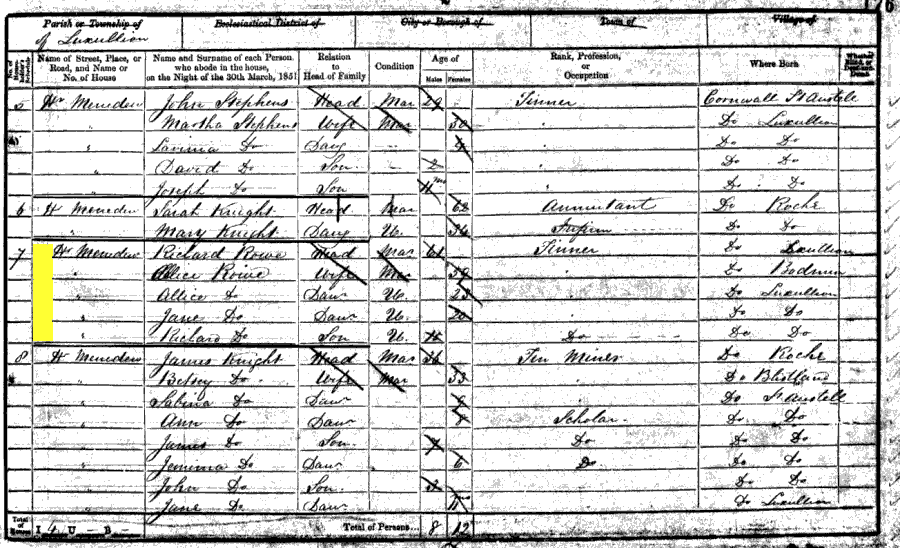 Parish or Township of Ecclesiastical District of City or Borough of Town of Village of
of Luxullion
Name of Street, Place, or Road, and Name or No. of House Name and Surname of each Person who abode in the house, on the Night of the 30th March, 1851 Relation to Head of Family Condition Age of Males Females Rank, Profession, or Occupation Where Born
Menedew John Stephens Head Mar 29 Tinner Cornwall St Austell
" Martha Stephens Wife Mar 30 Do Luxullion
" Lavinia Do Daug Do Do
" David Do Son 2 Do Do
" Joseph Do Son Do Do
6 Menedew Sarah Knight Head Mar 62 Annuitant Do Roche
" Mary Knight Daug U. 36 Do Do
7 Menedew Richard Rowe Head Mar 61 Tinner Do Luxullion
" Allice Rowe Wife Mar 59 Do Bodmin
" Allice Do Daur U. 23 Do Luxullion
" Jane Do Daur U. 20 Do Do
" Richard Do Son U. Do Do Do
8 Menedew James Knight Head Mar 36 Tin Miner Do Roche
" Betsey Do Wife Mar 33 Do Blisland
" Sabina Do Daur Do St Austell
" Ann Do Daur 8 Scholar Do Do
" James Do Son 7 Do Do Do
" Jemima Do Daur 6 Do Do Do
" John Do Son 3 Do Do
" Jane Do Daur Do Luxullion
Total of Houses I 4 U – B – Total of Persons... 8 12